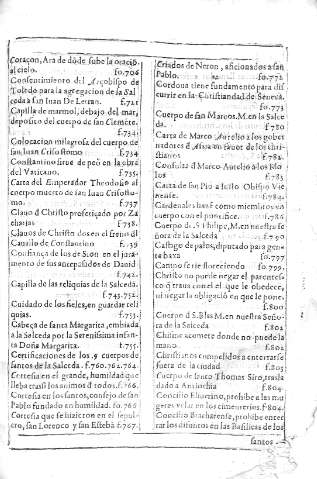 Coraçon, Ara de dõde sube la oraciõ
al cielo. fo.706
Consentimiento del Arçobispo de
Toledo para la agregacion de la Sal
ceda a san Iuan De Letran. f.721
Capilla de marmol, debajo del mar,
deposito del cuerpo de san Clemẽte.
f.734.
Colocacion milagrosa del cuerpo de
san Iuan Crisostomo f.734
Constantino sirue de peõ en la obra
del Vaticano. f.735.
Carta del Emperador Theodosio al
cuerpo muerto de san Iuan Crisosto-
mo. f.737
Clauo de Christo profetiçado por Za
charias f.738.
Clauos de Christo dos en el freno dl
Cauallo de Constantino f.739
Confiança de los de Sion en el jura-
mento de sus antepasados de Dauid
f.742.
Capilla de las reliquias de la Salceda.
f.743.752.
Cuidado de los fieles, en guardar reli
quias. f.753.
Cabeça de santa Margarita, embiada
a la Salceda por la Serenissima infan-
ta Doña Margarita. f.755.
Certificaciones de los cuerpos de
santos de la Salceda. f.760.762.764.
Cortesia en el grande, humildad que
lleba tras si los animos d todos. f.766.
Cortesia en los santos, consejo de san
Pablo fundado en humildad. fo.766
Cortesia que se hizieron en el sepul-
cro, san Lorenço y san Esteba f.767.
Criados de Neron, aficionados a san
Pablo. f.772.
Cordoua tiene fundamento para dis
currir en la Christiandad de Seneca.
fo.773
Cuerpo de san Marcos.M.en la Salce
da. f.780
Carta de Marco Aurelio a los gober
nadores d Asia en fauor de los chri-
stianos f.782.
Consulas d Marco Aurelio a los
f.783.
Carta de san Pio a Iusto Obispo Vie
nense. f.784.
Cardenales han d como miembros en
cuerpo con el pontifice. f.786.
Cuerpo de S. Philipe, M.en nuestra se
ñora de la Salceda f.790
fo.797
Campo fertil floreciendo f.799.
Christo no puede negar el parentes-
co d traua con el que le obedece,
ni negar la obligaciõ en que le pone.
f.800.
Cuerpo d S.Blas M.en nuestra Seño-
ra de la Salceda f.802
mano. f.802
Christianos compelidos a enterrarse
fuera de la ciudad f.803
Cuerpo de santo Thomas Siro, trasla
dado a Antiochia f.804.
Concilio Eliberino, prohibe a las mu
geres velar en los cimenterios. f.804.
Concilio Bracharense, prohibe enter
rar los difuntos en las Basilicas de los
santos